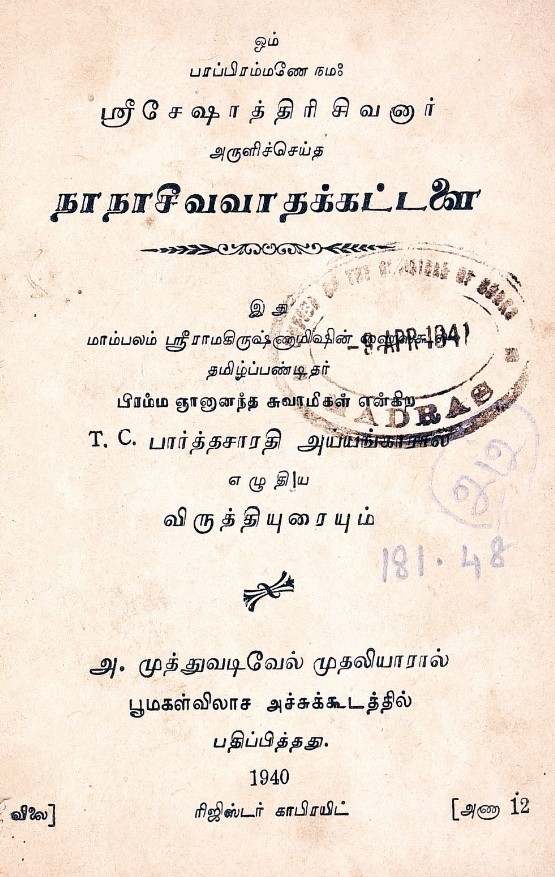 ஓம்
பரப்பிரம்மணே நமஃ
ஸ்ரீ சே ஷாத்திரி சிவனார்
அருளிச்செய்த
நாநாசீவவாதக்கட்டளை
இது
மாம்பலம் ஸ்ரீராமகிருஷ்ணமிஷின்
தமிழ்ப்பண்டிதர்
பிரம்ம ஞானானந்த சுவாமிகள் என்கிற
T. C. பார்த்தசாரதி அய்யங்காரால்
எழுதிய
விருத்தியுரையும்
OF THE REGISTRAR OF BOOKS
-9 APR 1941
MADRAS
181.48
அ. முத்துவடிவேல் முதலியாரால்
பூமகள்விலாச அச்சுக்கூடத்தில்
பதிப்பித்தது.
1940
விலை] ரிஜிஸ்டர் காபிரயிட் [அணா 12